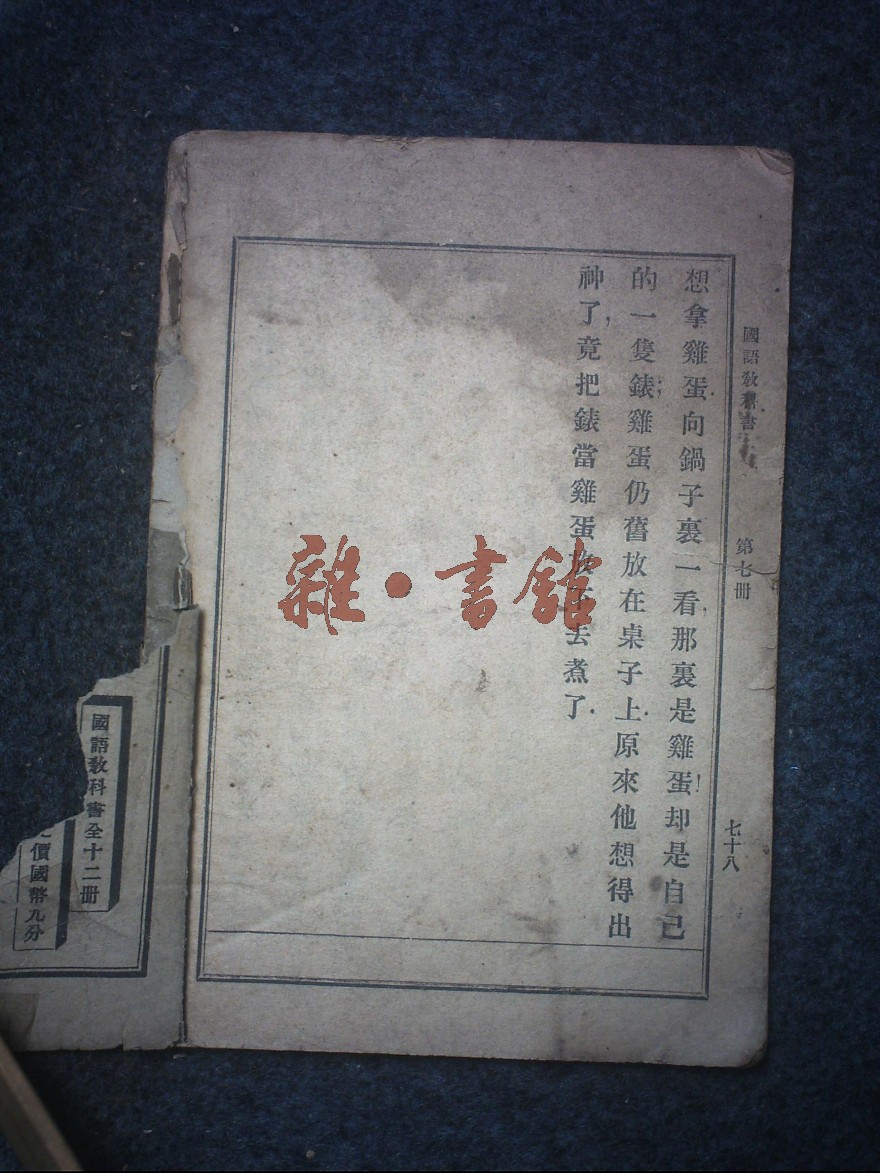 國語教科書 第七冊 七十八
想拿雞蛋向鍋子裏一看,那裏是雞蛋!却是自己
的一隻錶;雞蛋仍舊放在桌子上.原來他想得出
神了,竟把錶當雞蛋放下去煮了.
雜·書館
國語教科書全十二冊
價國幣九分